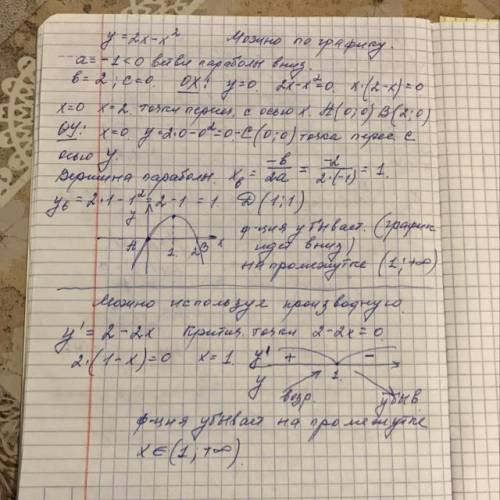 y = 2x - x² Можно по графику.
a = -1 < 0 ветви параболы вниз.
b = 2; c = 0. OX: y = 0. 2x - x² = 0. x·(2-x) = 0
x = 0 x = 2. точки перес. с осью x. A(0;0) B(2;0)
OY: x = 0. y = 2·0 - 0² = 0 - C(0;0) точка перес. с
осью y.
Вершина параболы. xв = -b/2a = -2/2·(-1) = 1.
yв = 2·1 - 1² = 2 - 1 = 1 D(1;1)
y
A 1 2 B x
ф-ция убывает. (график
идет вниз)
на промежутке (1; +∞)
Можно используя производную
y' = 2 - 2x Критич. точки 2 - 2x = 0
2·(1-x) = 0 x = 1. y' + -
y 1.
возр убыв
ф-ция убывает на промежутке
x ∈ (1; +∞)